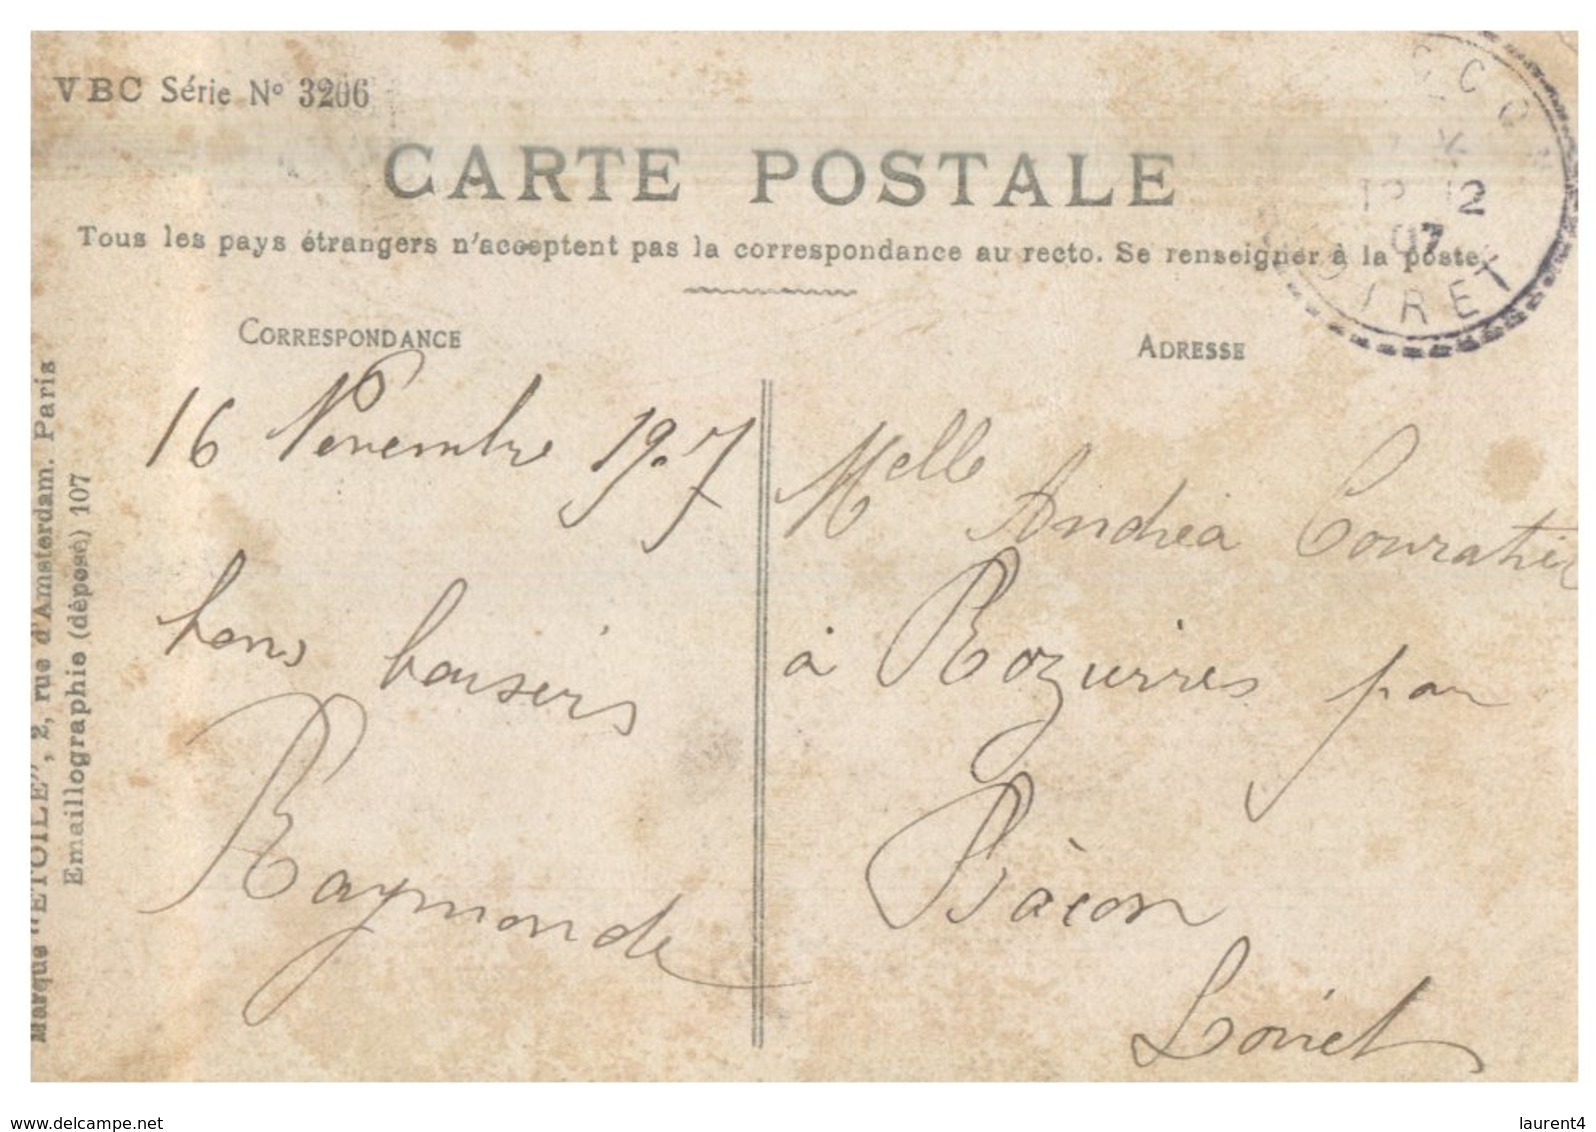 VBC Série N° 3206
CARTE POSTALE
Tous les pays étrangers n'acceptent pas la correspondance au recto. Se renseigner à la poste
12 12
07
OIRET
CORRESPONDANCE
ADRESSE
16 Novembre 1907
bons baisers
Raymonde
Melle Andréa Couratier
à Rozierres par
Bàcon
Loiret
Marque "ETOILE", 2, rue d'Amsterdam. Paris
Emaillographie (déposé) 107
www.delcampe.net
laurent4